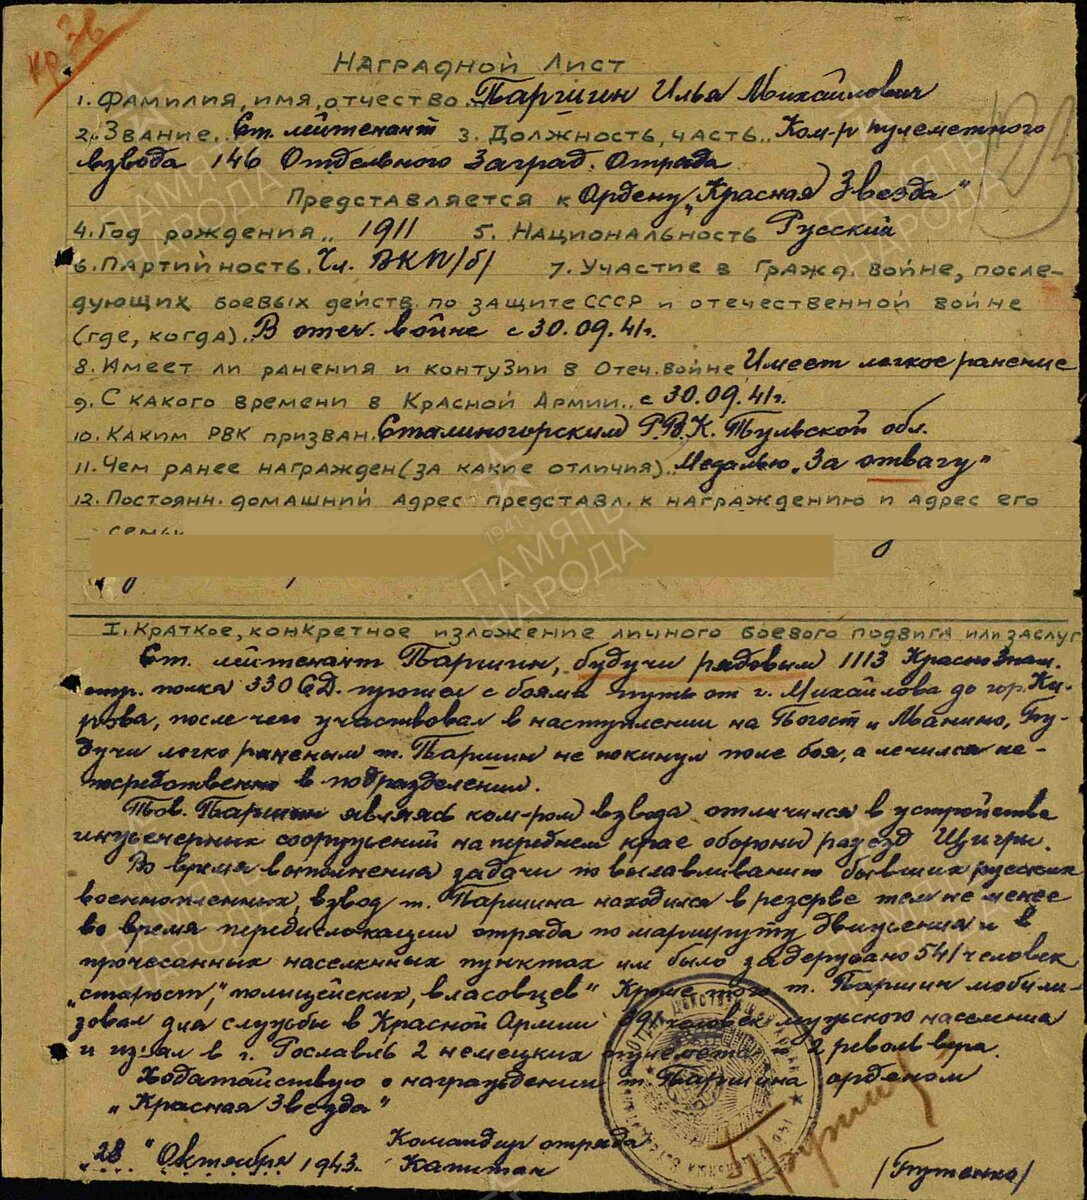 кр. Зв
Наградной Лист
1. Фамилия, имя, отчество.. Паршин Илья Михайлович
2. Звание.. Ст. лейтенант 3. Должность, часть.. Ком-р пулеметного
взвода 146 Отдельного Заград. Отряда
Представляется к Ордену „Красная Звезда"
4. Год рождения.. 1911 5. Национальность Русский
6. Партийность. Чл. ВКП/б/ 7. Участие в Гражд. войне, после-
дующих боевых действ. по защите СССР и отечественной войне
(где, когда). В отеч. войне с 30.09.41г.
8. Имеет ли ранения и контузии в Отеч. войне Имеет легкое ранение
9. С какого времени в Красной Армии.. с 30.09.41г.
10. Каким РВК призван. Сталиногорским Р.В.К. Тульской обл.
11. Чем ранее награжден (за какие отличия). Медалью „За отвагу"
12. Постоянн. домашний адрес представл. к награждению и адрес его
семьи
I. Краткое, конкретное изложение личного боевого подвига или заслуг
Ст. лейтенант Паршин, будучи рядовым 1113 Краснознам.
стр. полка 330 СД. прошел с боями путь от г. Михайлова до гор. Ки-
рова, после чего участвовал в наступлении на Погост и Манино, Бу-
дучи легко раненым т. Паршин не покинул поле боя, а лечился не-
посредственно в подразделении.
Тов. Паршин являясь ком-ром взвода отличился в устройстве
инженерных сооружений на переднем крае обороны разъезд Щигры.
Во время выполнения задачи по вылавливанию бывших русских
военнопленных, взвод т. Паршина находился в резерве тем не менее
во время передислокации отряда по маршруту движения и в
прочесанных населенных пунктах им было задержано 541 человек
„старост", „полицейских, власовцев" Кроме того т. Паршин мобили-
зовал для службы в Красной Армии человек мужского населения
и изъял в г. Рославль 2 немецких пулемета и 2 револьвера.
Ходатайствую о награждении т. Паршина орденом
„Красная Звезда"
Командир отряда
28 " Октября 1943. Капитан /Бутенко/